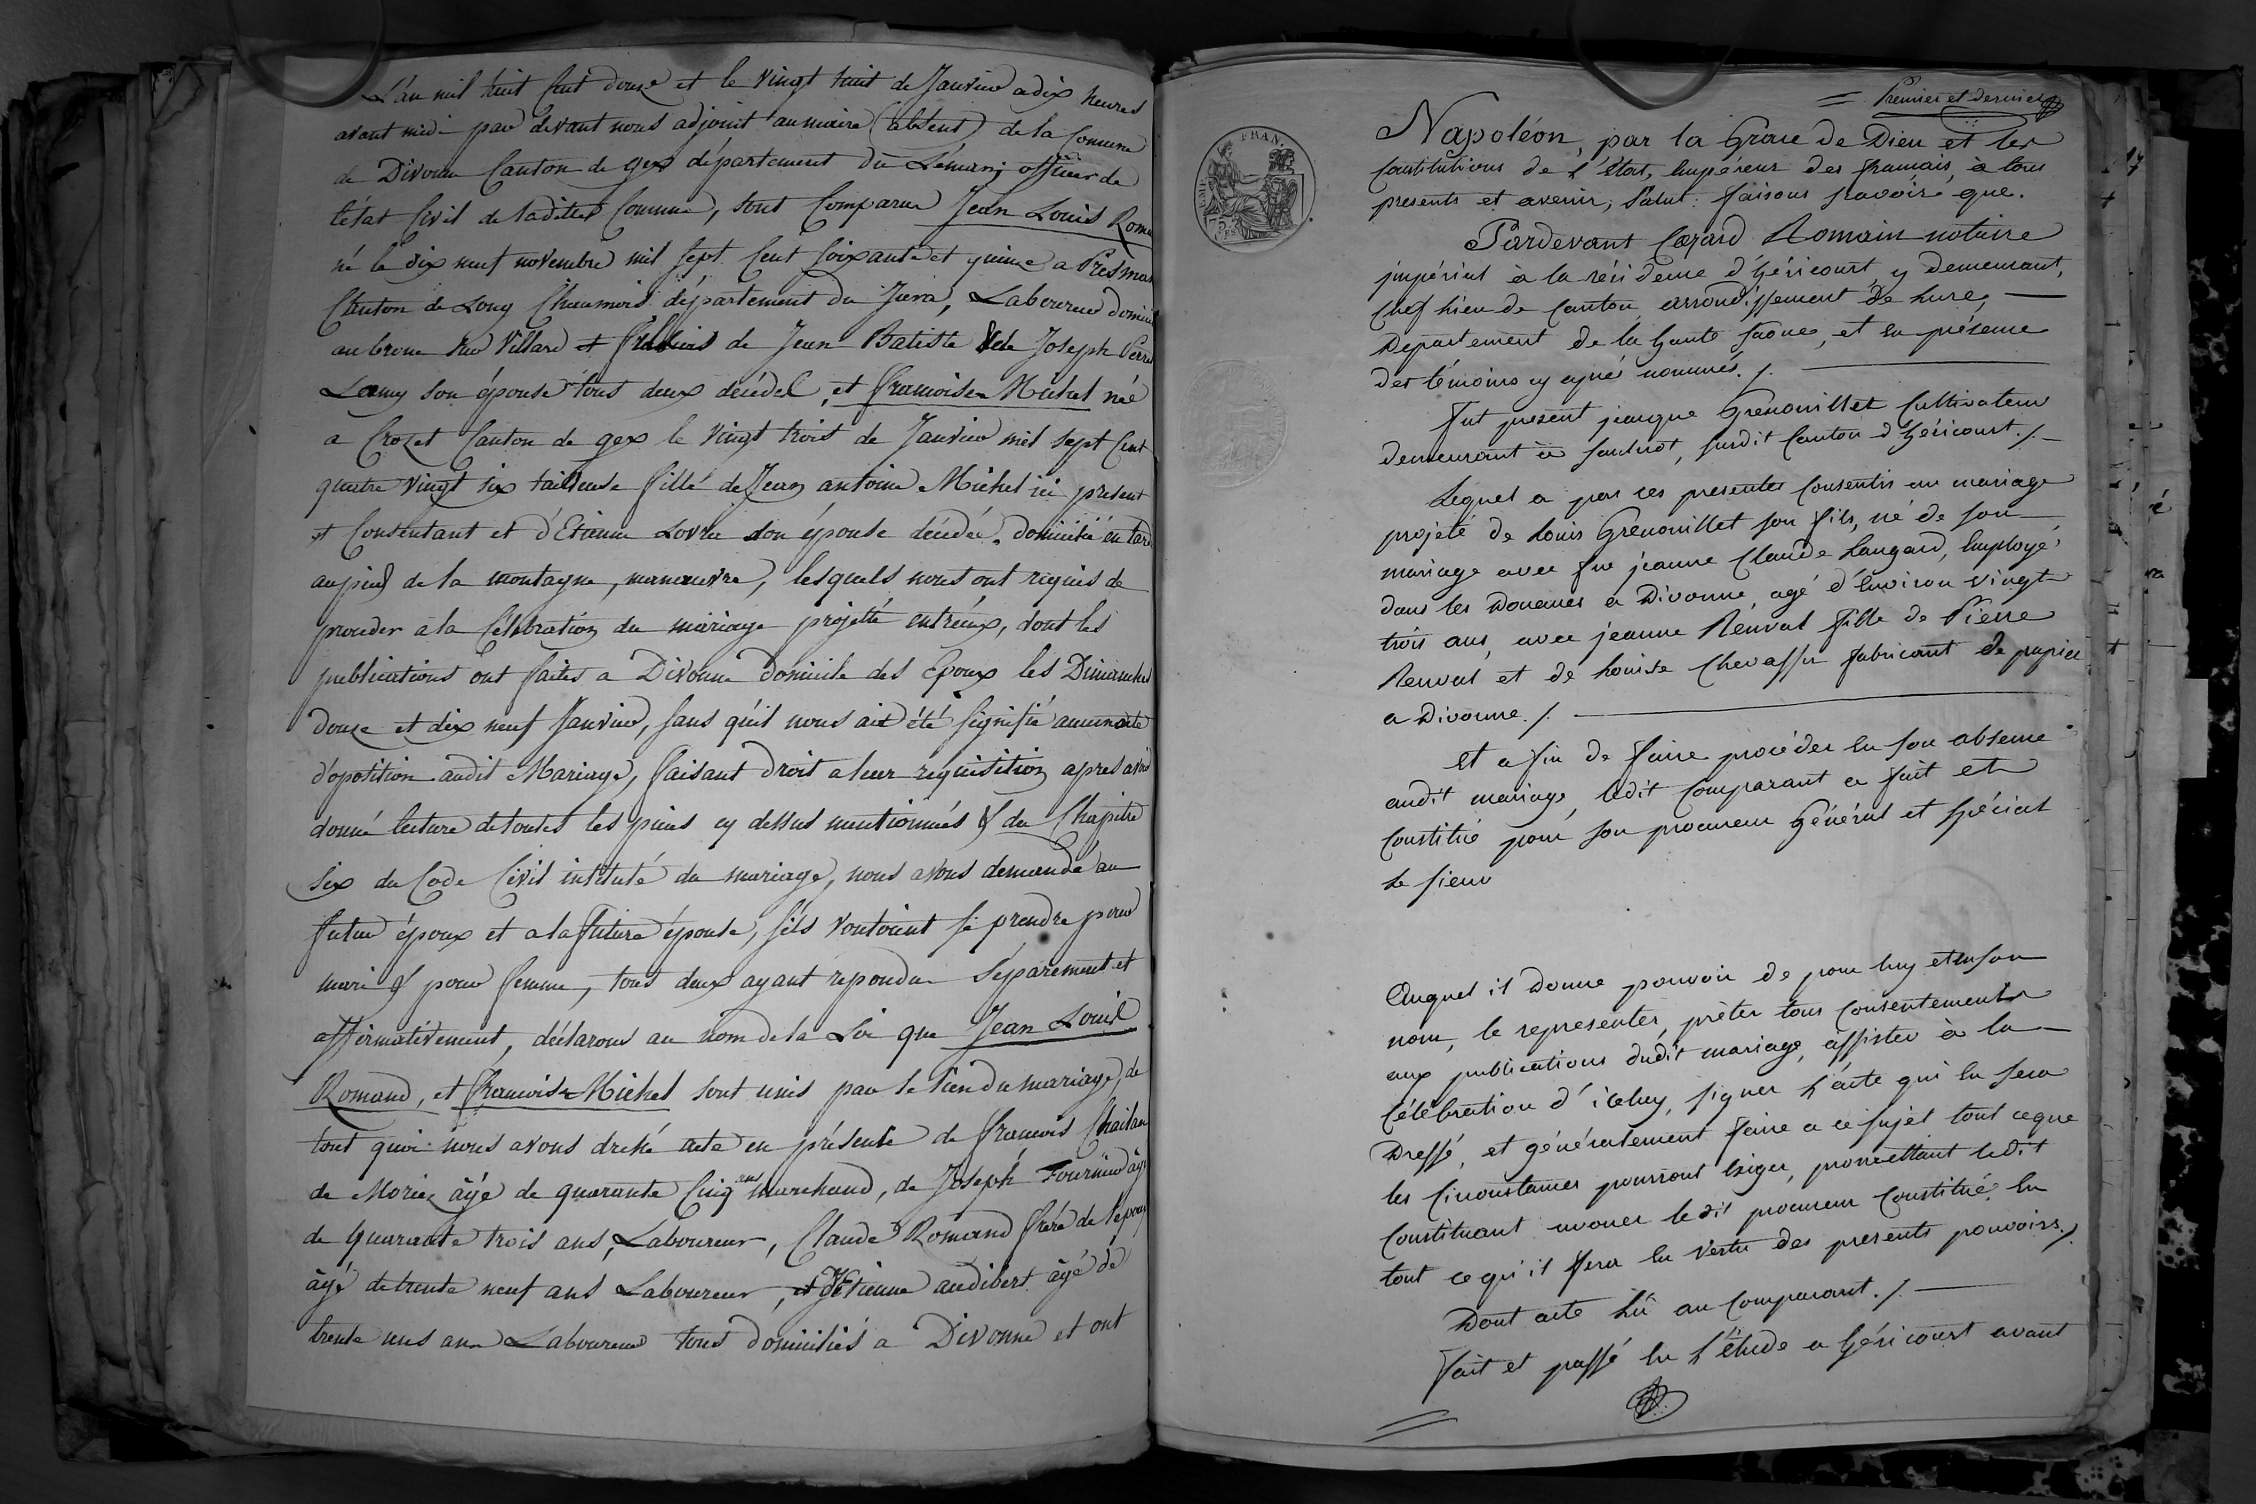 L'an mil huit Cent douze et le vingt huit de Janvier a dix heures
avant midi par devant nous adjoint au maire (absent) de la Comune
de Divonne Canton de gex département du Léman, officier de
l'état Civil de ladite Comune, sont Comparus Jean Louis Roma
né le dix neuf novembre mil sept Cent soixante et quinze a Présma
Canton de Long Chaumois département du Jura, Laboureur domici
au brona sur Villard et de Jean Batiste & de Joseph
Lamy son épouse tous deux décédés, et francoise Michel née
a Crozet Canton de gex le vingt trois de Janvier mil sept Cent
quatre vingt six tailleuse fille de Jean antoine Michel ici présent
et Consentant et d'Etienne son épouse décédée. domicilié en
au pied de la montagne, manœuvre, lesquels nous ont requis de
proceder a la Celebration du mariage projetté entr'eux, dont les
publications ont faites a Divonne domicile des Epoux les Dimanches
douze et dix neuf Janvier, sans qu'il nous ait été signifié aucun acte
d'oposition audit Mariage, faisant droit a leur requisition apres avoir
donné lecture de toutes les pieces cy dessus mentionnées & du Chapitre
six du Code Civil intitulé du mariage, nous avons demandé au
futur époux et a la future épouse, s'ils vouloient se prendre pour
mari & pour femme, tous deux ayant repondu séparement et
affirmativement, déclarons au nom de la Loi que Jean Louis
Romand, et francoise Michel sont unis par le lien du mariage, de
tout quoi nous avons dressé acte en présence de francois
de Moriez âgé de quarante Cinq ans marchand, de Joseph Fournier âgé
de quarante trois ans, Laboureur, Claude Romand frere de l'epoux
âgé de trente neuf ans Laboureur, et d'Etienne audibert âgé de
trente uns ans Laboureur tous domiciliés a Divonne et ont
= Premier et dernier
Napoléon, par la Grace de Dieu et les
Constitutions de l'état, Empéreur des francais, à tous
presents et avenir, salut: faisons scavoir que.
Pardevant Cazard Romain notaire
impérial à la résidence d'héricourt y demeurant,
chef lieu de Canton, arrondissement de Lure,
Departement de la haute saone, et en présence
des témoins cy après nommés. /.
fut present jacque Grenouillet Cultivateur
demeurant à saulnot, susdit Canton d'héricourt. /.
Lequel a par ces presentes Consentis au mariage
projeté de Louis Grenouillet son fils, né de son
mariage avec fue jeanne Claude Laugard, Employé
dans les Douanes a Divonne, agé d'Environ vingt
trois ans, avec jeanne Renval fille de Pierre
Renval et de Louise Chevassu fabricant de papier
a Divonne. /.
et a fin de faire procéder en son absence
audit mariage, ledit Comparant a fait et
Constitué pour son procureur Général et spécial
le sieur
Auquel il donne pouvoir de pour luy et en son
nom, le representer, prêter tous Consentements
aux publications dudit mariage, assister à la
Célébration d'iceluy, signer l'acte qui en sera
Dressé, et généralement faire a ce sujet tout ceque
les Circonstances pourront Exiger, promettant ledit
Constituant avouer ledit procureur Constitué en
tout ce qu'il fera en vertu des presents pouvoirs. /.
Dont acte Lû au Comparant. /.
fait et passé en l'étude a héricourt avant